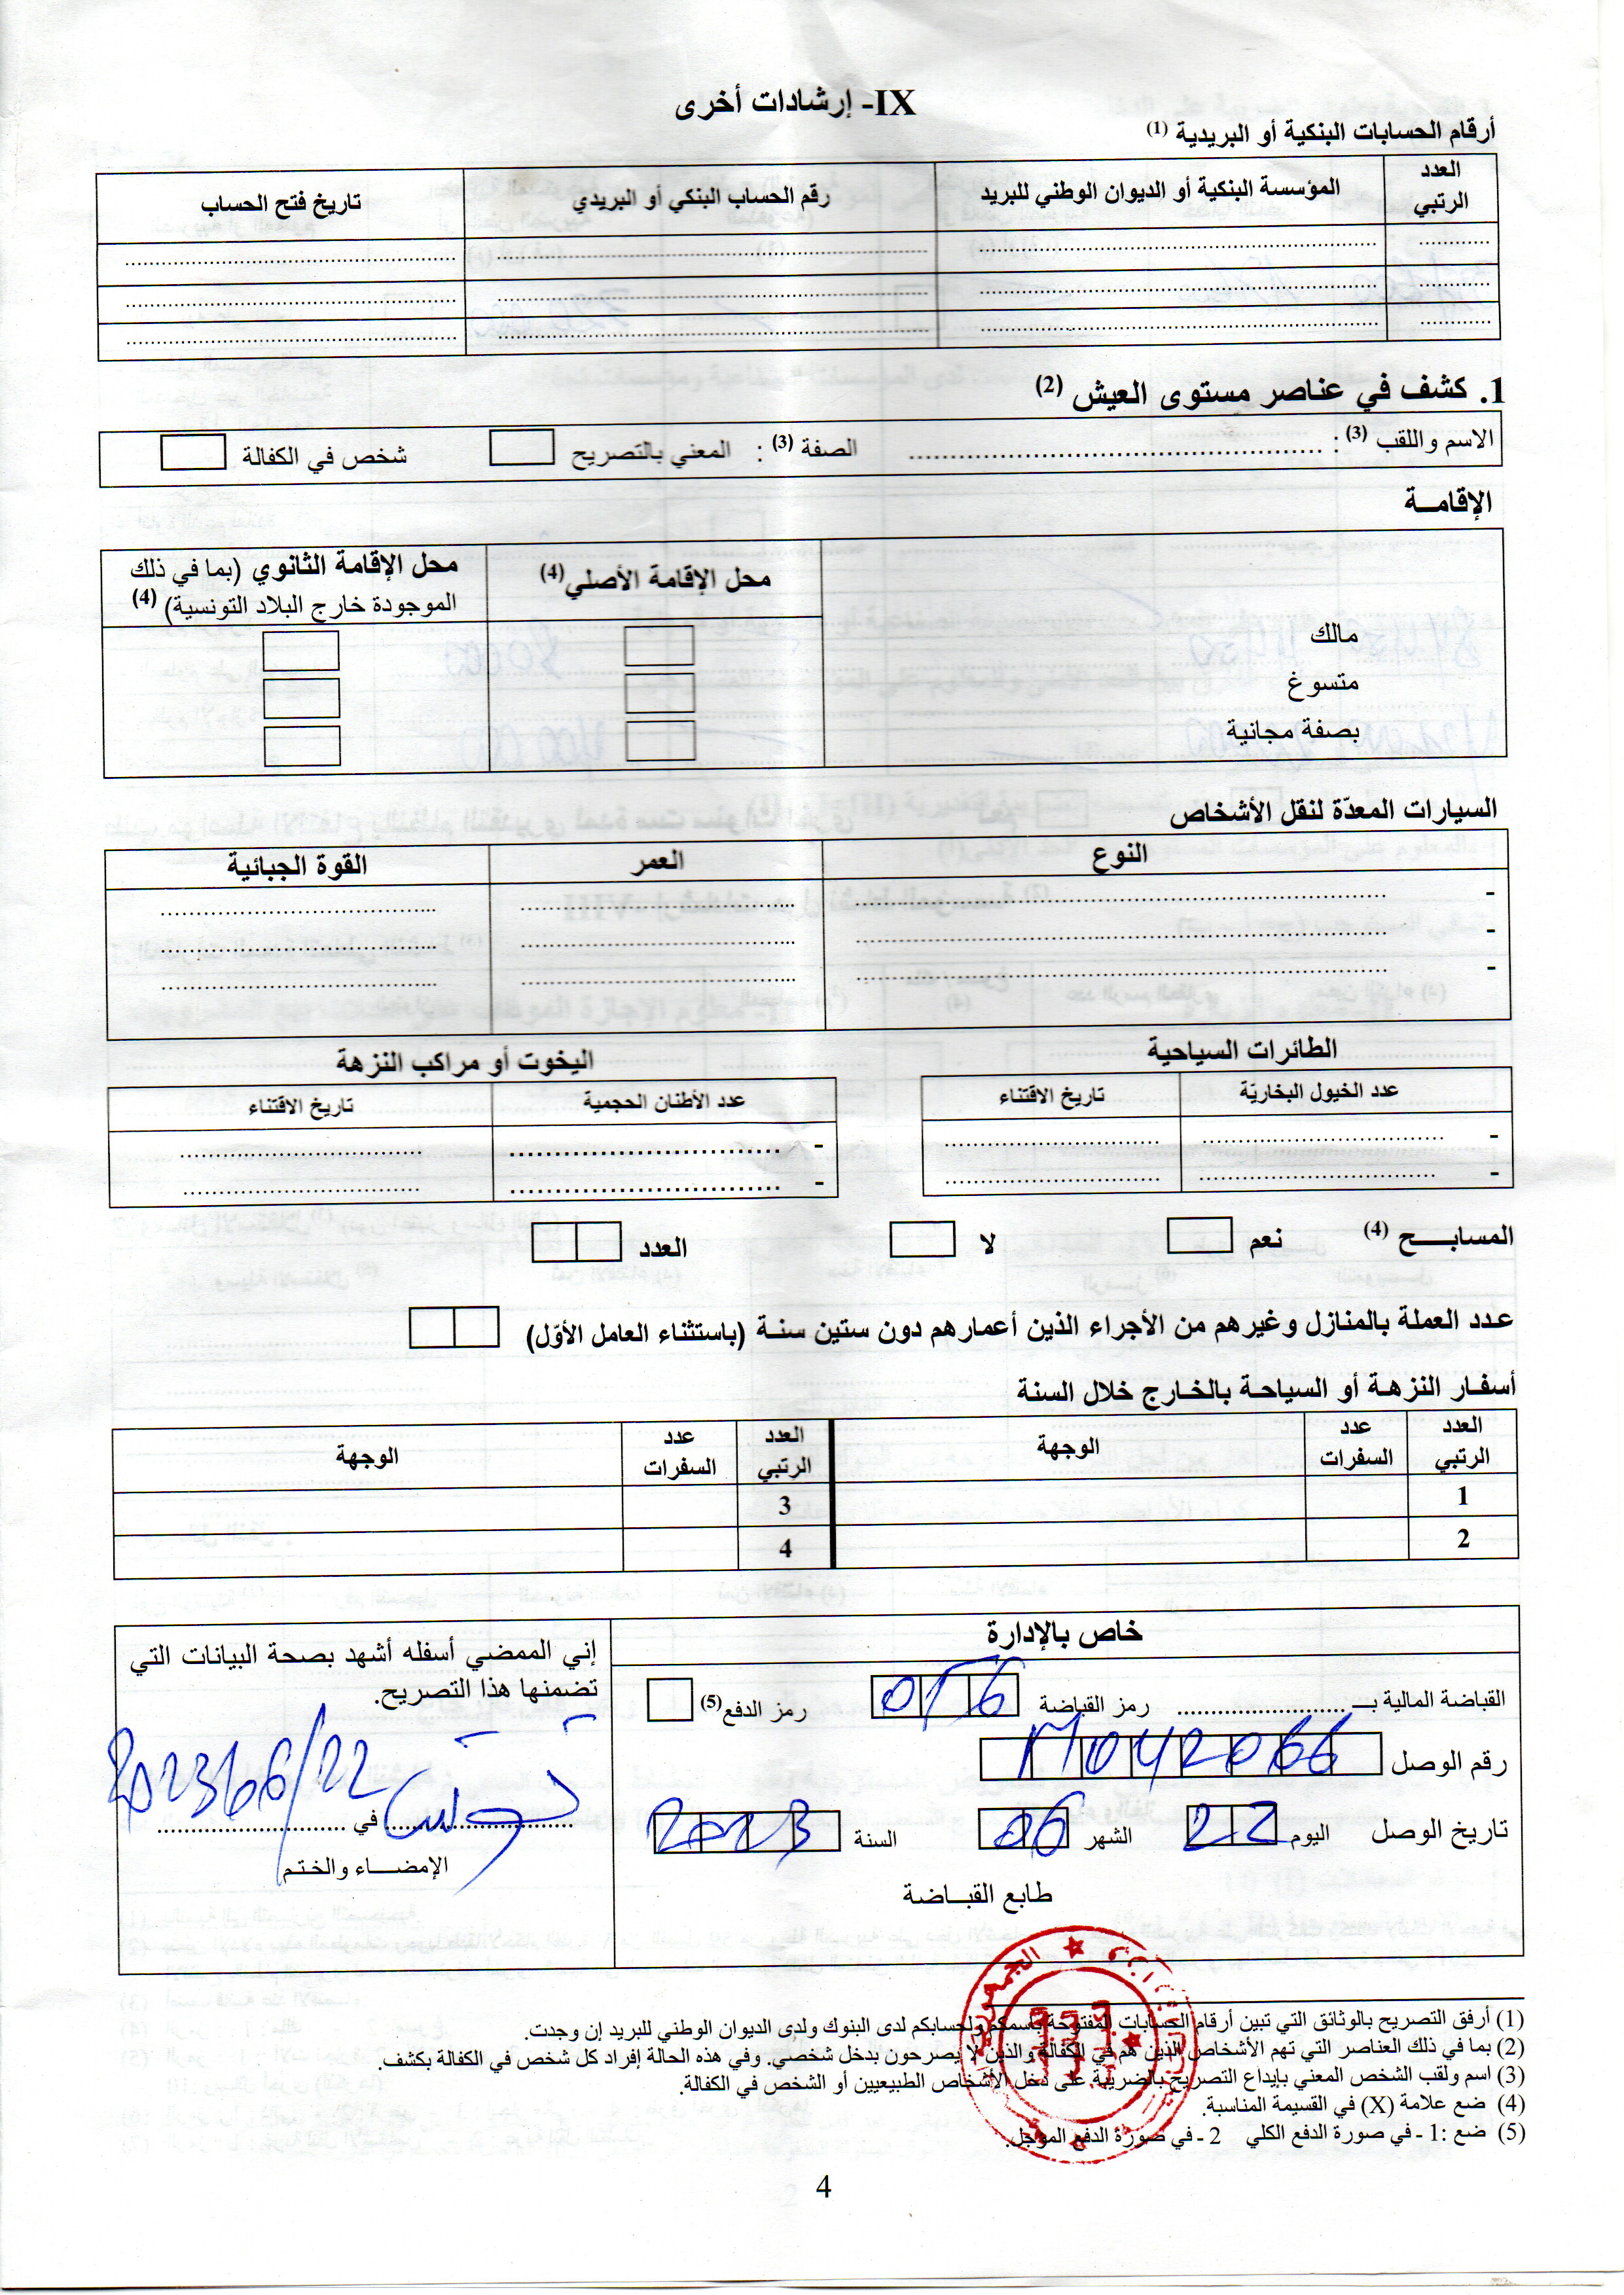 IX- إرشادات أخرى
أرقام الحسابات البنكية أو البريدية (1)
العدد الرتبي | المؤسسة البنكية أو الديوان الوطني للبريد | رقم الحساب البنكي أو البريدي | تاريخ فتح الحساب
1. كشف في عناصر مستوى العيش (2)
الاسم واللقب (3) : ........ الصفة (3) : المعني بالتصريح شخص في الكفالة
الإقامــة
محل الإقامة الأصلي(4) | محل الإقامة الثانوي (بما في ذلك الموجودة خارج البلاد التونسية) (4)
مالك
متسوغ
بصفة مجانية
السيارات المعدّة لنقل الأشخاص
النوع | العمر | القوة الجبائية
-
-
-
الطائرات السياحية
عدد الخيول البخاريّة | تاريخ الاقتناء
-
-
اليخوت أو مراكب النزهة
عدد الأطنان الحجمية | تاريخ الاقتناء
-
-
المسابـــــح (4) نعم لا العدد
عـدد العملة بالمنازل وغيرهم من الأجراء الذين أعمارهم دون ستين سنـة (باستثناء العامل الأوّل)
أسفـار النزهـة أو السياحـة بالخـارج خلال السنة
العدد الرتبي | عدد السفرات | الوجهة | العدد الرتبي | عدد السفرات | الوجهة
1 | 3
2 | 4
خاص بالإدارة
القباضة المالية بـــ ........ رمز القباضة 056 رمز الدفع(5)
رقم الوصل M042066
تاريخ الوصل اليوم 22 الشهر 06 السنة 2023
طابع القبــاضة
إني الممضي أسفله أشهد بصحة البيانات التي
تضمنها هذا التصريح.
تونس في 2023/06/22
الإمضـــاء والختـم
(1) أرفق التصريح بالوثائق التي تبين أرقام الحسابات المفتوحة باسمكم ولحسابكم لدى البنوك ولدى الديوان الوطني للبريد إن وجدت.
(2) بما في ذلك العناصر التي تهم الأشخاص الذين هم في الكفالة والذين لا يصرحون بدخل شخصي. وفي هذه الحالة إفراد كل شخص في الكفالة بكشف.
(3) اسم ولقب الشخص المعني بإيداع التصريح بالضريبة على دخل الأشخاص الطبيعيين أو الشخص في الكفالة.
(4) ضع علامة (X) في القسيمة المناسبة.
(5) ضع :1 ـ في صورة الدفع الكلي 2 ـ في صورة الدفع المؤجل.
4